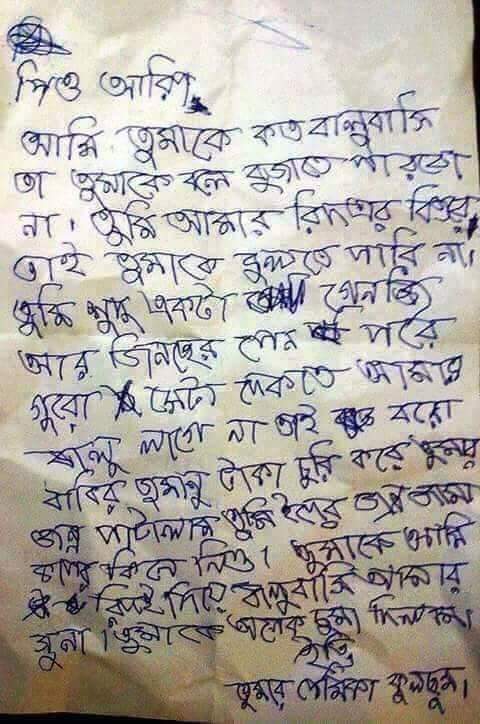 পিও আরিপ,
আমি তুমাকে কত বালুবাসি
তা তুমাকে বলে বুজাতে পারবো
না। তুমি আমার রিদয়ের বিতরে
তাই তুমাকে বুলতে পারি না।
তুমি শুদু একটা গেনজি
আর জিনছের পেন পরে
গুরো সেটা দেকতে আমার
বালু লাগে না তাই বরো
বাবির জমানু টাকা চুরি করে তুমার
জন্ন পাটালাম তুমি ইদের জন্ন জামা
কাপর কিনে নিও। তুমাকে আমি
রিদই দিয়ে বালুবাসি আমার
সুনা। তুমাকে অনেক চুমা দিলাম।
ইতি
তুমার পেমিকা কুলছুম।